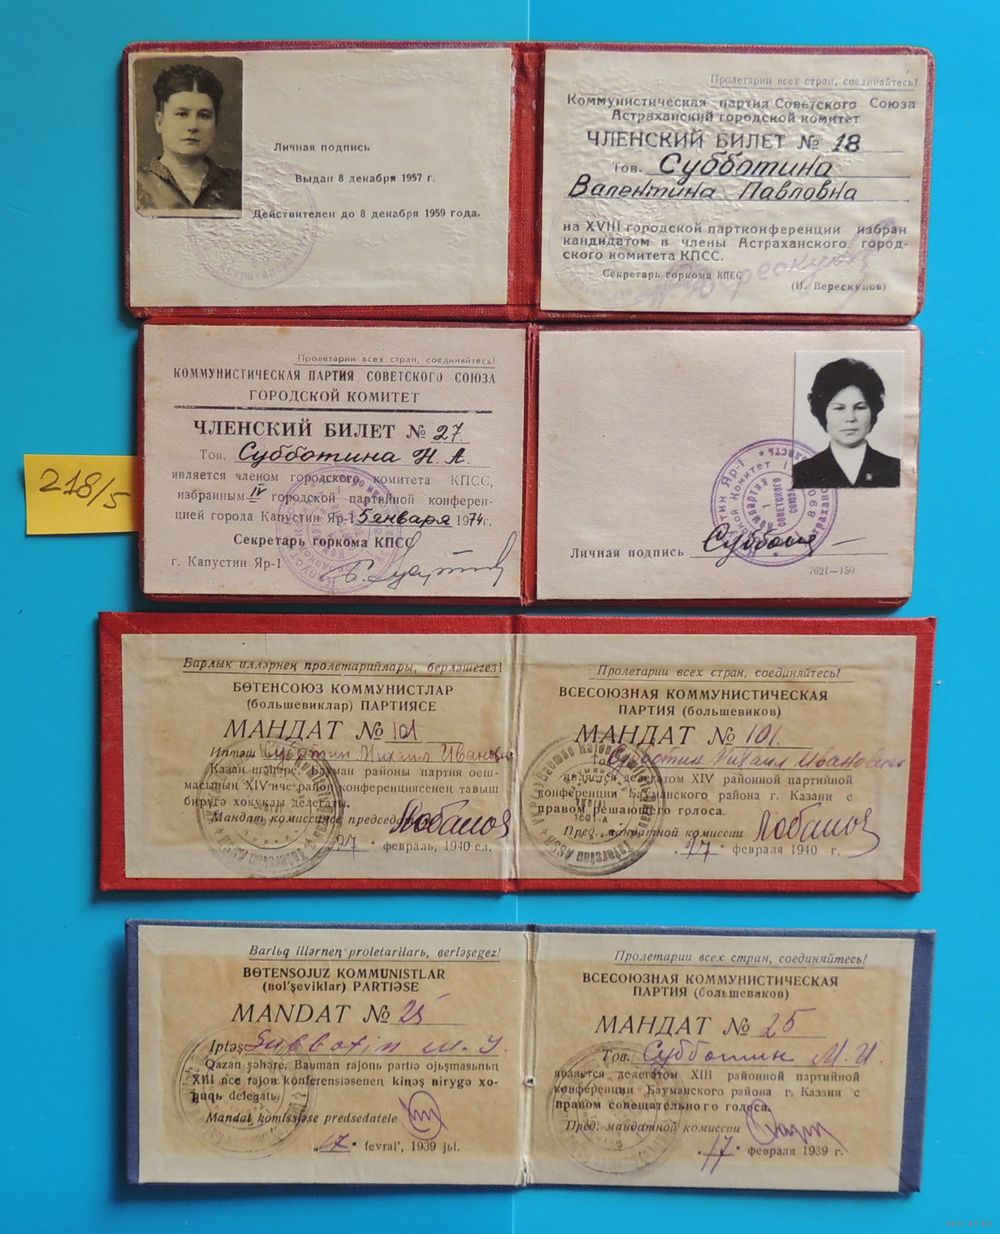 Личная подпись
Выдан 8 декабря 1957 г.
Действителен до 8 декабря 1959 года.
Пролетарии всех стран, соединяйтесь!
Коммунистическая партия Советского Союза
Астраханский городской комитет
ЧЛЕНСКИЙ БИЛЕТ № 18
Тов. Субботина
Валентина Павловна
на XVIII городской партконференции избран
кандидатом в члены Астраханского город-
ского комитета КПСС.
Секретарь горкома КПСС
(И. Верескунов)
Пролетарии всех стран, соединяйтесь!
КОММУНИСТИЧЕСКАЯ ПАРТИЯ СОВЕТСКОГО СОЮЗА
ГОРОДСКОЙ КОМИТЕТ
ЧЛЕНСКИЙ БИЛЕТ № 27.
Тов. Субботина Н. А.
является членом городского комитета КПСС,
избранным IV городской партийной конферен-
цией города Капустин Яр-1 5 января 1974 г.
Секретарь горкома КПСС
г. Капустин Яр-1
Личная подпись
7621—150
218/5
Барлык илләрнең пролетарийлары, берләшегез!
БӨТЕНСОЮЗ КОММУНИСТЛАР
(большевиклар) ПАРТИЯСЕ
МАНДАТ № 101
Иптәш Субботин Михаил Иванович
Казан шәһәре, Бауман районы партия оеш-
масының XIV-нче район конференциясенең тавыш
бирүгә хокуклы делегаты.
Мандат комиссиясе председателе Лобанов
"27" февраль, 1940 ел.
Пролетарии всех стран, соединяйтесь!
ВСЕСОЮЗНАЯ КОММУНИСТИЧЕСКАЯ
ПАРТИЯ (большевиков)
МАНДАТ № 101.
Тов. Субботин Михаил Иванович
является делегатом XIV районной партийной
конференции Бауманского района г. Казани с
правом решающего голоса.
Пред. мандатной комиссии Лобанов
"27" февраля 1940 г.
Barlьq illərneꞑ proletarilarь, berləşegez!
BɵTENSOJUZ KOMMUNISTLAR
(bol'şeviklar) PARTIƏSE
MANDAT № 25
Iptəş Subbotin M. I.
Qazan şəhəre, Bauman rajonь partiə ojьşmasьnьꞑ
XIII nce rajon konferensiəseneꞑ kiꞑəş birygə xo-
quqlь delegatь.
Mandat komissiəse predsedatele
"17" fevral', 1939 jьl.
Пролетарии всех стран, соединяйтесь!
ВСЕСОЮЗНАЯ КОММУНИСТИЧЕСКАЯ
ПАРТИЯ (большевиков)
МАНДАТ № 25
Тов. Субботин М. И.
является делегатом XIII районной партийной
конференции Бауманского района г. Казани с
правом совещательного голоса.
Пред. мандатной комиссии
"17" февраля 1939 г.